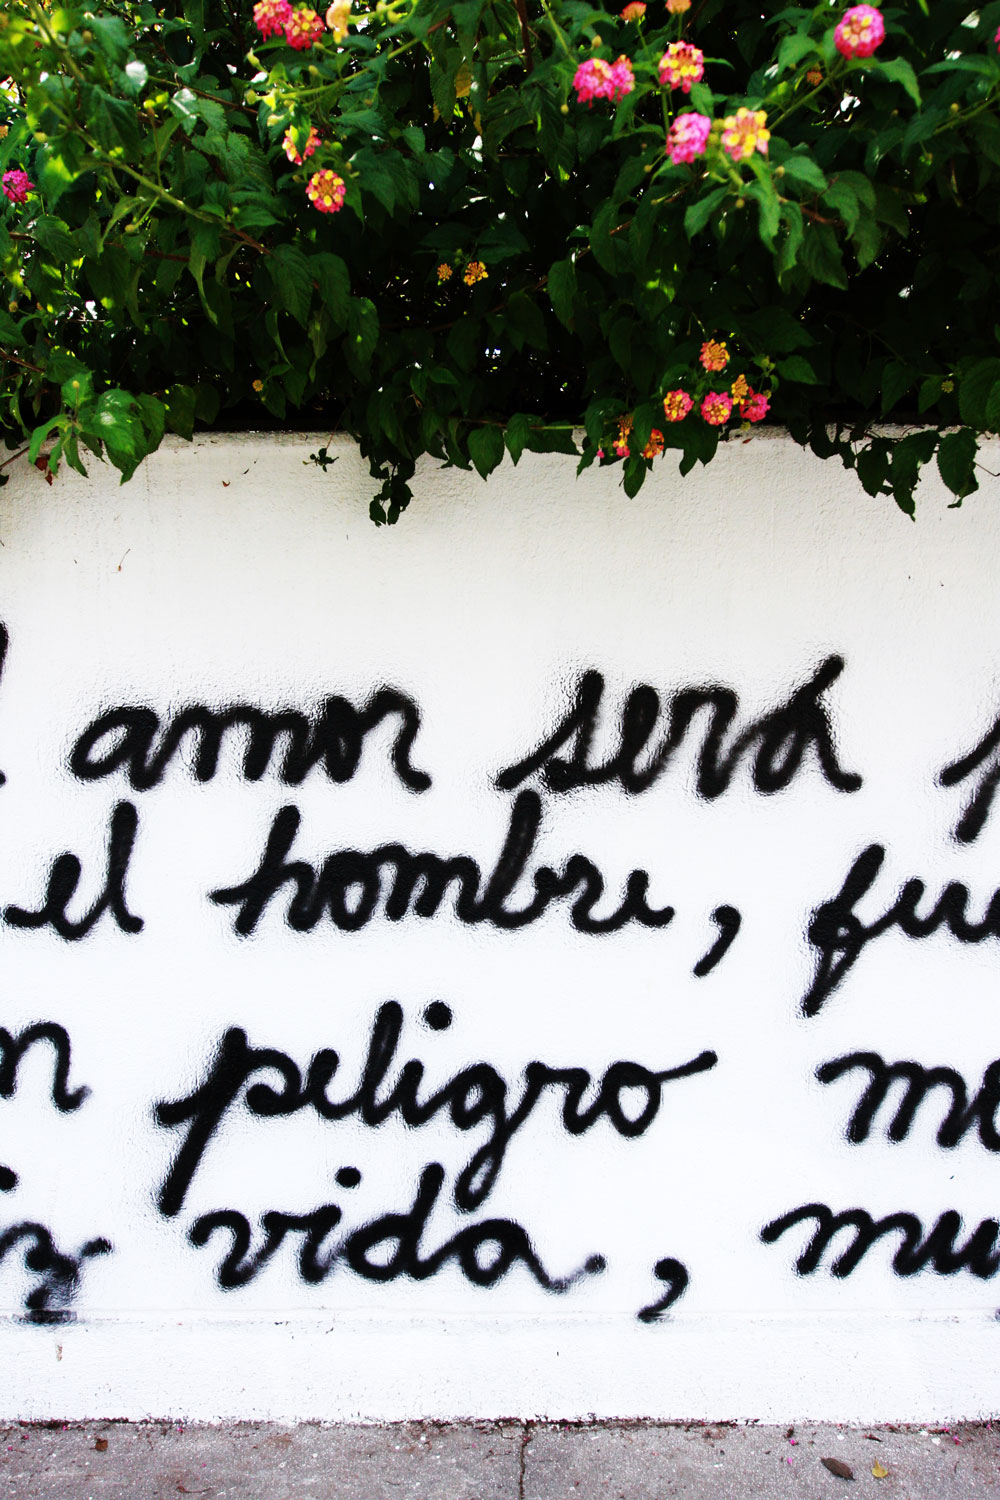 amor será
el hombre, fue
peligro
vida,